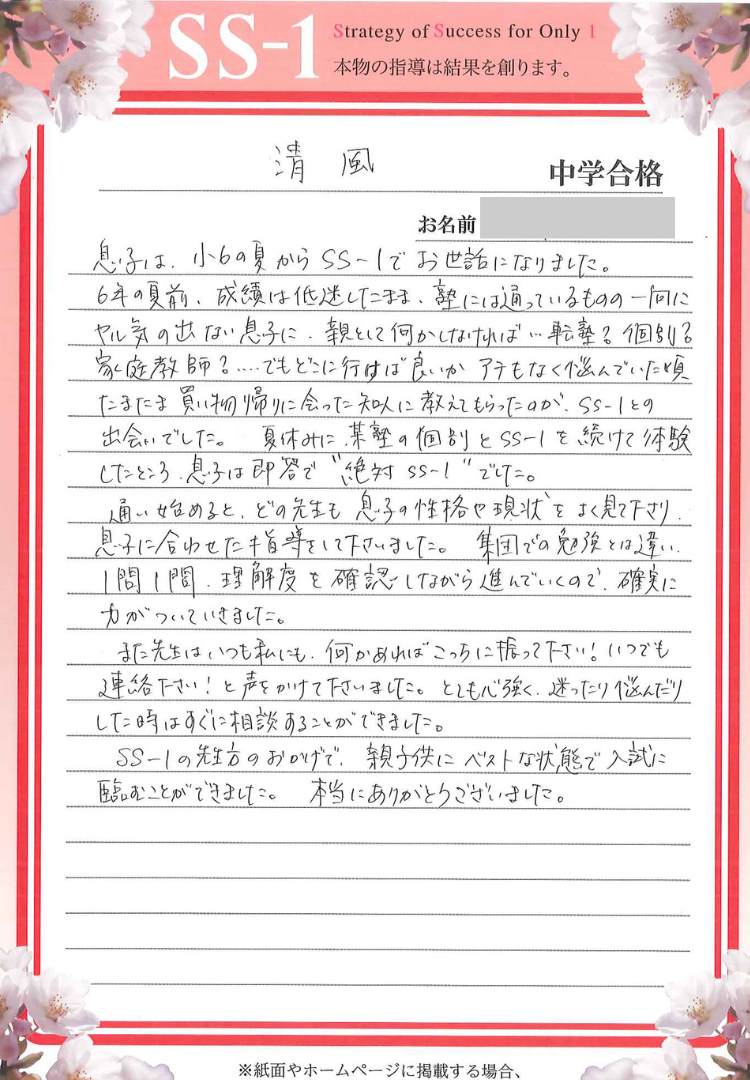 SS-1
Strategy of Success for Only 1
本物の指導は結果を創ります。
清風
中学合格
お名前
息子は、小6の夏からSS-1でお世話になりました。
6年の夏前、成績は低迷したまま、塾には通っているものの一向に
ヤル気の出ない息子に、親として何かしなければ…転塾?個別?
家庭教師?‥‥でもどこに行けば良いかアテもなく悩んでいた頃
たまたま買い物帰りに会った知人に教えてもらったのが、SS-1との
出会いでした。 夏休みに、某塾の個別とSS-1を続けて体験
したところ、息子は即答で"絶対SS-1"でした。
通い始めると、どの先生も息子の性格や現状をよく見て下さり、
息子に合わせた指導をして下さいました。 集団での勉強とは違い、
1問1問、理解度を確認しながら進んでいくので、確実に
力がついていきました。
また先生はいつも私にも、何かあればこっちに振って下さい!いつでも
連絡下さい!と声をかけて下さいました。とても心強く、迷ったり悩んだり
した時はすぐに相談することができました。
SS-1の先生方のおかげで、親子供にベストな状態で入試に
臨むことができました。 本当にありがとうございました。
※紙面やホームページに掲載する場合、